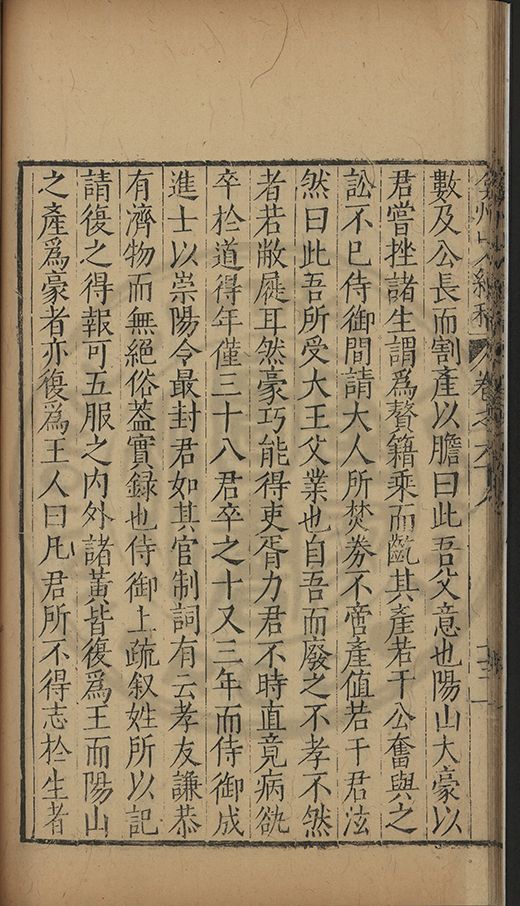 數及公長而割產以贍曰此吾父意也陽山大豪以
君嘗挫諸生謂爲贅籍乘而齕其產若干公奮與之
訟不已侍御間請大人所焚券不啻產值若干君泫
然曰此吾所受大王父業也自吾而廢之不孝不然
者若敝屣耳然豪巧能得吏胥力君不時直竟病欬
卒於道得年僅三十八君卒之十又三年而侍御成
進士以崇陽令最封君如其官制詞有云孝友謙恭
有濟物而無絕俗蓋實録也侍御上疏叙姓所以記
請復之得報可五服之内外諸黃皆復爲王而陽山
之產爲豪者亦復爲王人曰凡君所不得志於生者